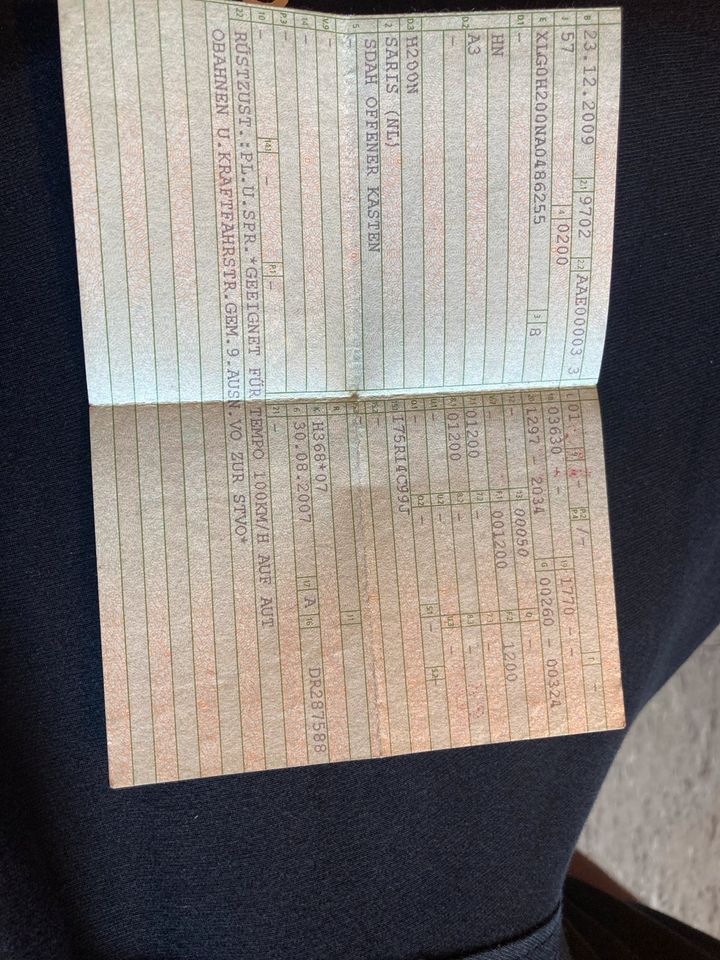 B 23.12.2009 2.1 9702 2.2 AAE00003 3
J 57 4 0200
E XLG0H200NA0486255 3 8
D.1 -
D.2 HN
A3
-
D.3 H200N
2 SARIS (NL)
5 SDAH OFFENER KASTEN
-
V.9 -
14 -
P.3 -
10 - 14.1 - P.1 -
22 RÜSTZUST.:PL.U.SPR.*GEEIGNET FÜR TEMPO 100KM/H AUF AUT
OBAHNEN U.KRAFTFAHRSTR.GEM.9.AUSN.VO ZUR STVO*
L 01 - P.2 P.4 /- T -
18 03630 - 19 1770 - -
20 1297 - 2034 G 00260 - 00324
12 - 13 00050 Q -
V.7 - F.1 001200 F.2 1200
7.1 01200 7.2 - 7.3 -
8.1 01200 8.2 - 8.3 -
U.1 - U.2 - U.3 -
O.1 - O.2 - S.1 - S.2 -
15.1 175R14C99J
15.2 -
15.3 -
R - 11
K H368*07
6 30.08.2007 17 A 16 DR287588
21 -